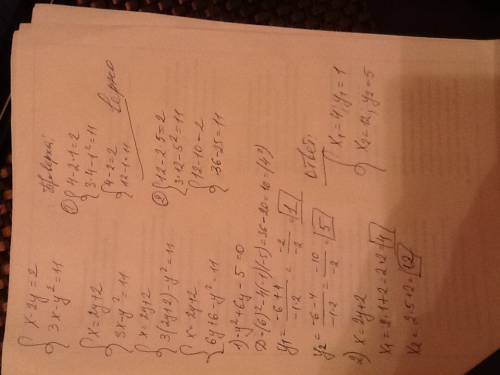 { x-2y=2
{ 3x-y²=11
{ x=2y+2
{ 3x-y²=11
{ x=2y+2
{ 3(2y+2)-y²=11
{ x=2y+2
{ 6y+6-y²=11
1) -y²+6y-5=0
D=(6)²-4(-1)(-5)=36-20=16=(4²)
y₁= (-6+4)/(-1·2) = -2/-2 = 1
y₂= (-6-4)/(-1·2) = -10/-2 = 5
2) x=2y+2
x₁=2·1+2=2+2=4
x₂=2·5+2=12
Проверка:
① { 4-2·1=2
{ 3·4-1²=11
{ 4-2=2
{ 12-1=11
верно
② { 12-2·5=2
{ 3·12-5²=11
{ 12-10=2
{ 36-25=11
Ответ:
{ x₁=4, y₁=1
{ x₂=12, y₂=5